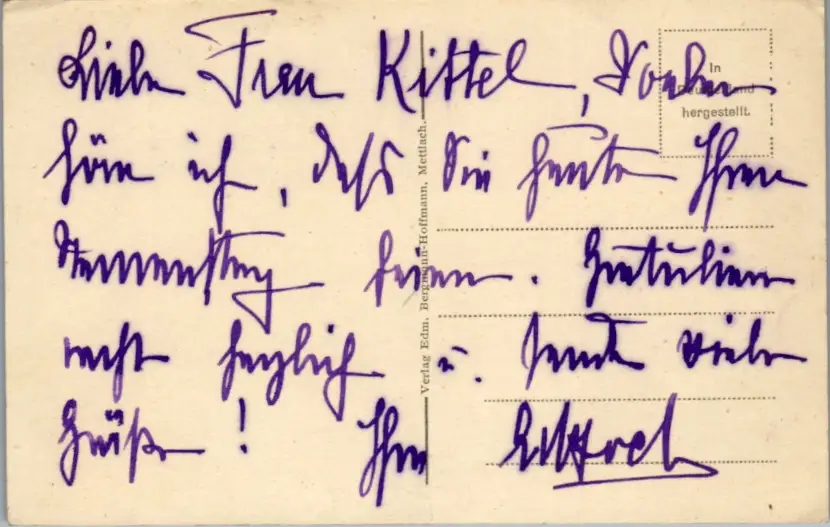 Liebe Frau Kittel, Soeben
In
Deutschland
hergestellt.
höre ich, daß Sie heute Ihren
Namenstag feiern. Gratuliere
recht herzlich u. sende viele
Grüße! Ihre
Verlag Edm. Bergmann-Hoffmann, Mettlach.